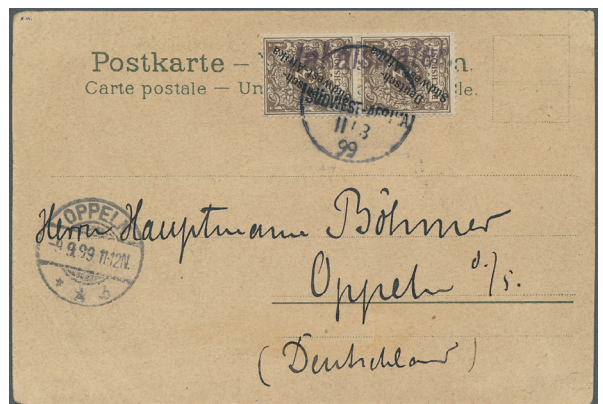 Postkarte –
Carte postale – Un
Deutsch-
Südwest-
Afrika
Deutsch-
Südwest-
Afrika
SÜDWEST-AFRIKA
11/8
99
OPPELN
-9.9.99.11-12N.
Herrn Hauptmann Böhmer
Oppeln o./s.
(Deutschland)